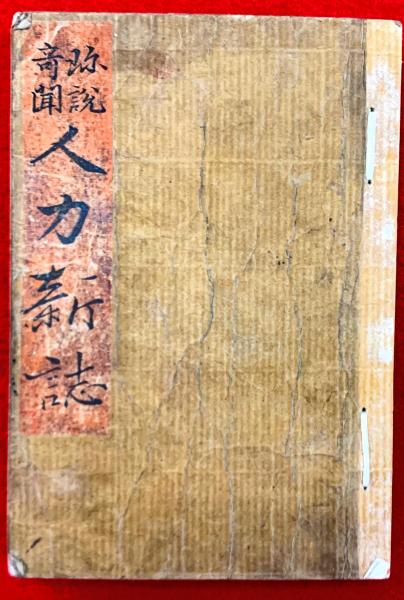 珎説
奇聞
人力新誌